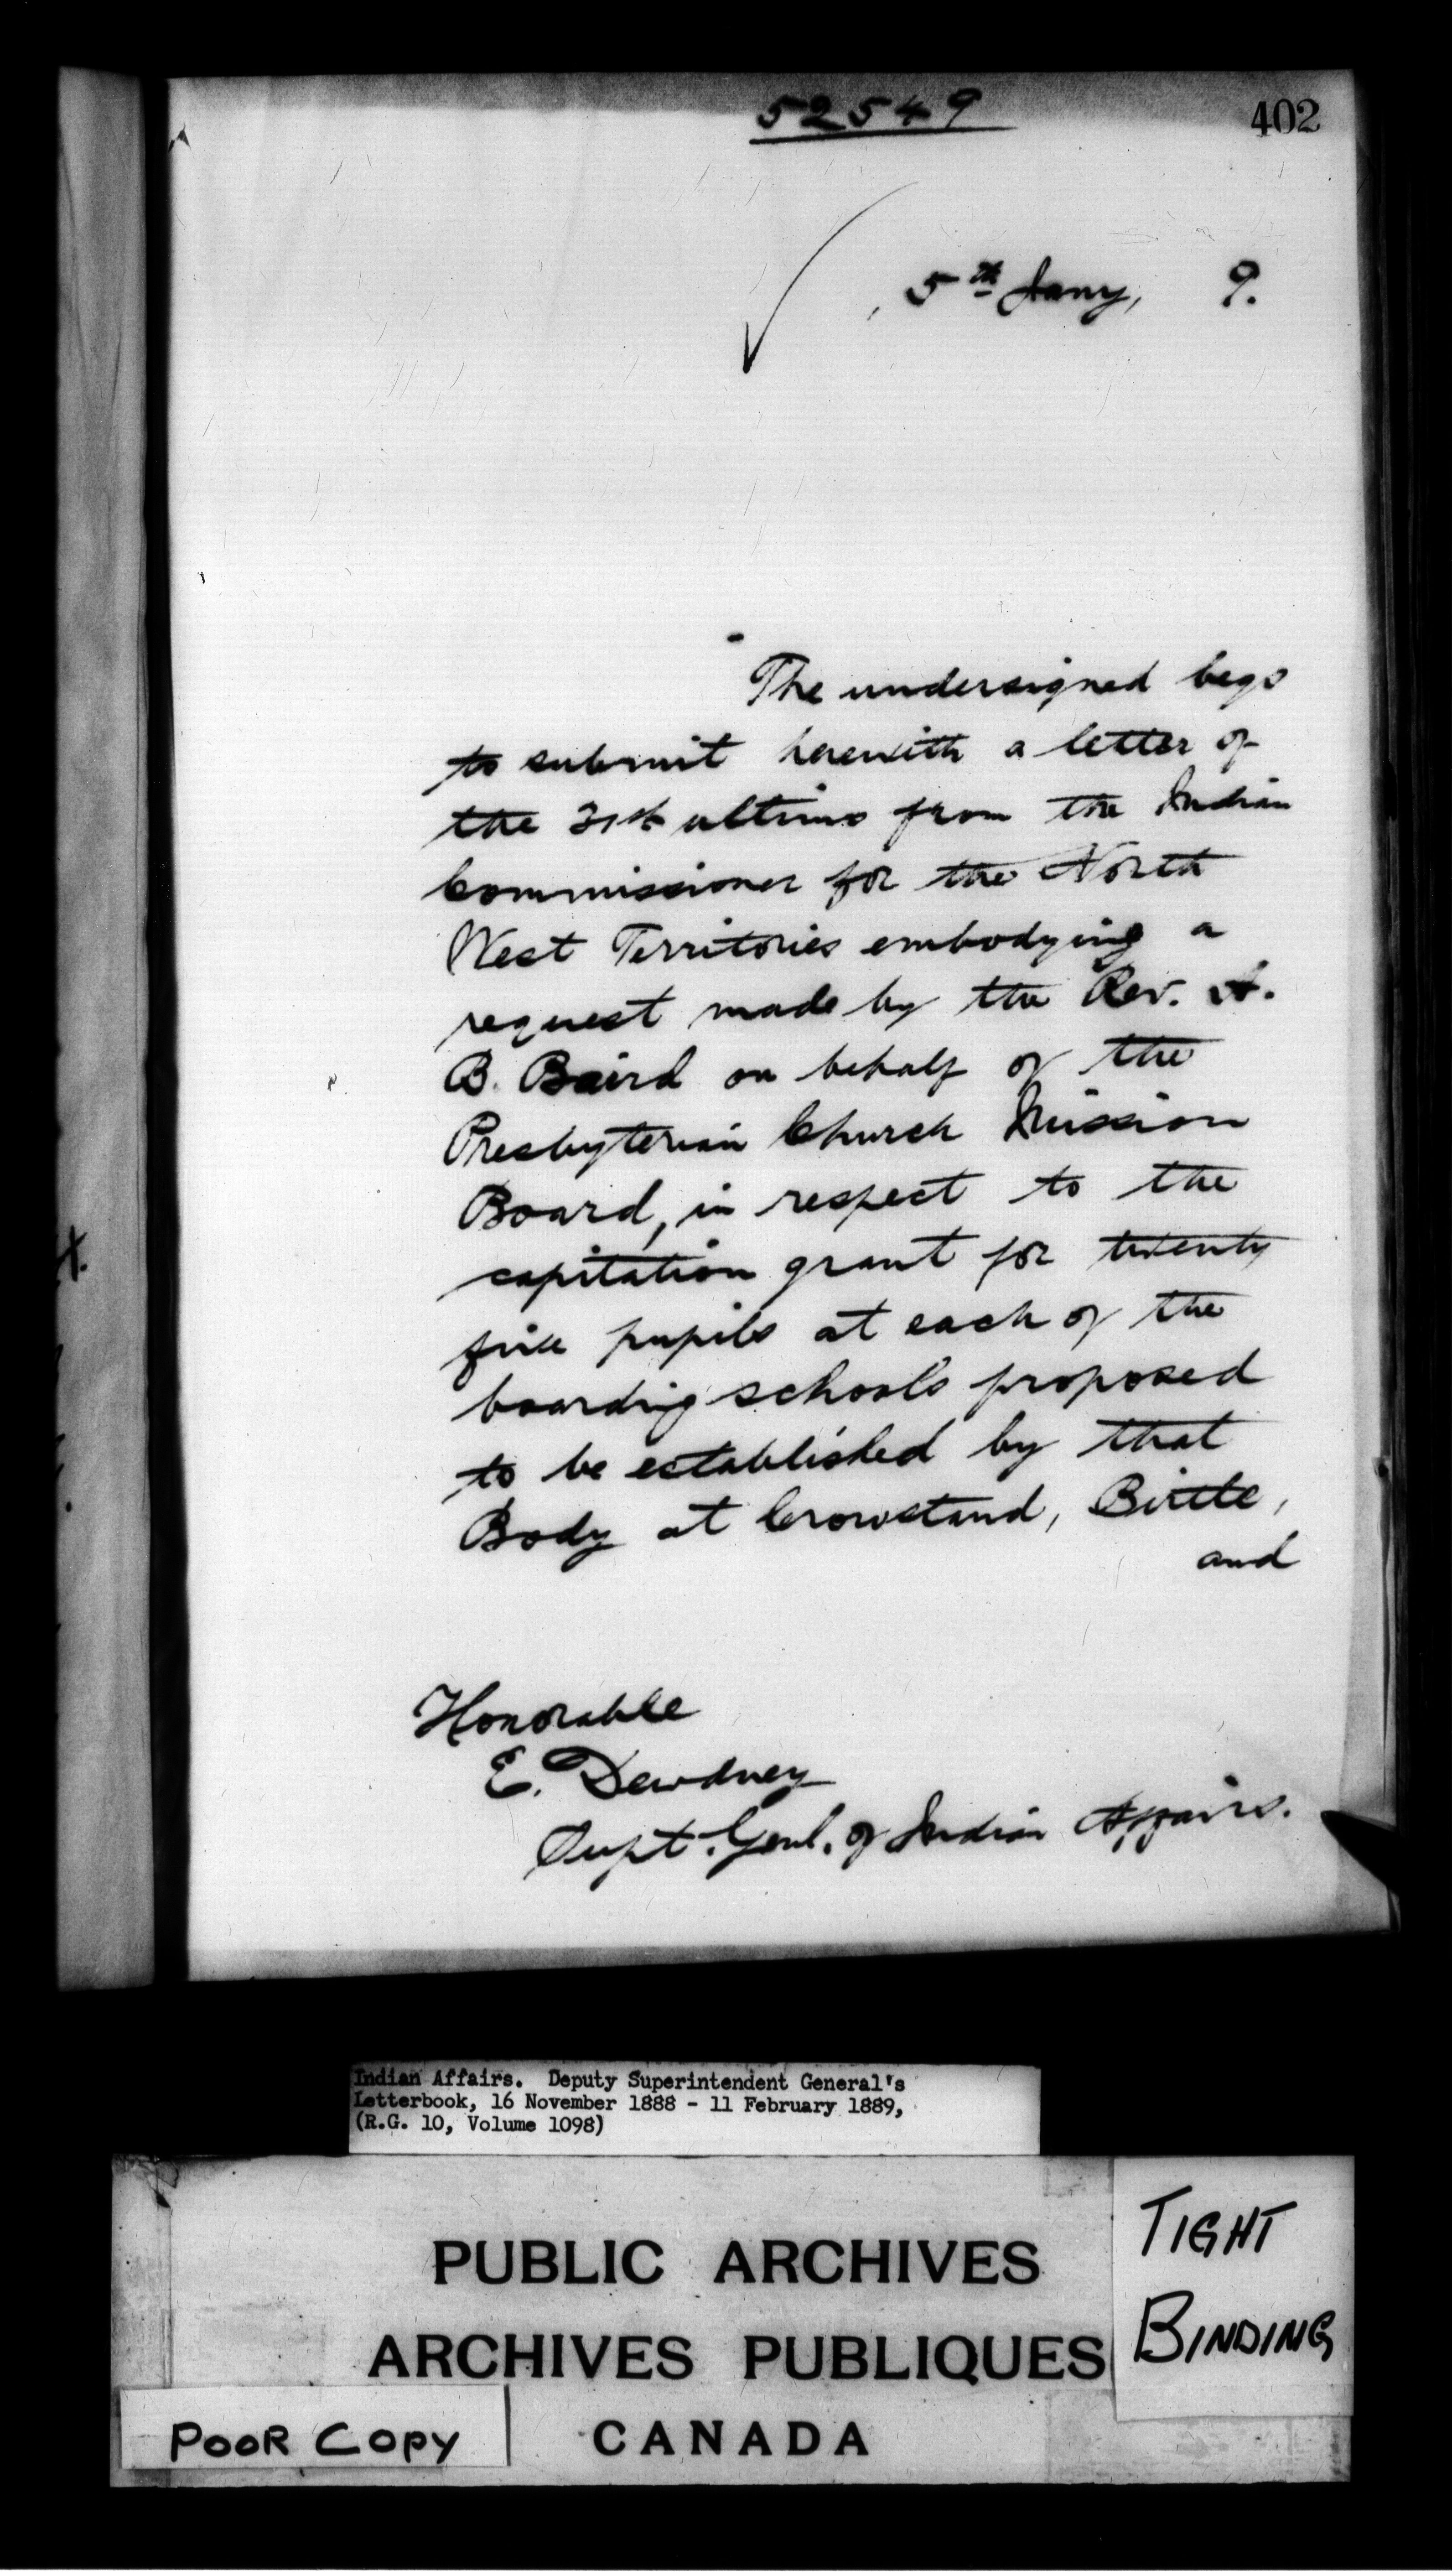 52549
402
5th Jany, 9.
The undersigned begs
to submit herewith a letter of
the 31st ultimo from the Indian
Commissioner for the North
West Territories embodying a
request made by the Rev. A.
B. Baird on behalf of the
Presbyterian Church Mission
Board, in respect to the
capitation grant for twenty
five pupils at each of the
boarding schools proposed
to be established by that
Body at Crowstand, Birtle,
and
Honorable
E. Dewdney
Supt. Genl. of Indian Affairs.
Indian Affairs. Deputy Superintendent General's
Letterbook, 16 November 1888 - 11 February 1889,
(R.G. 10, Volume 1098)
PUBLIC ARCHIVES
ARCHIVES PUBLIQUES
CANADA
TIGHT
BINDING
POOR COPY